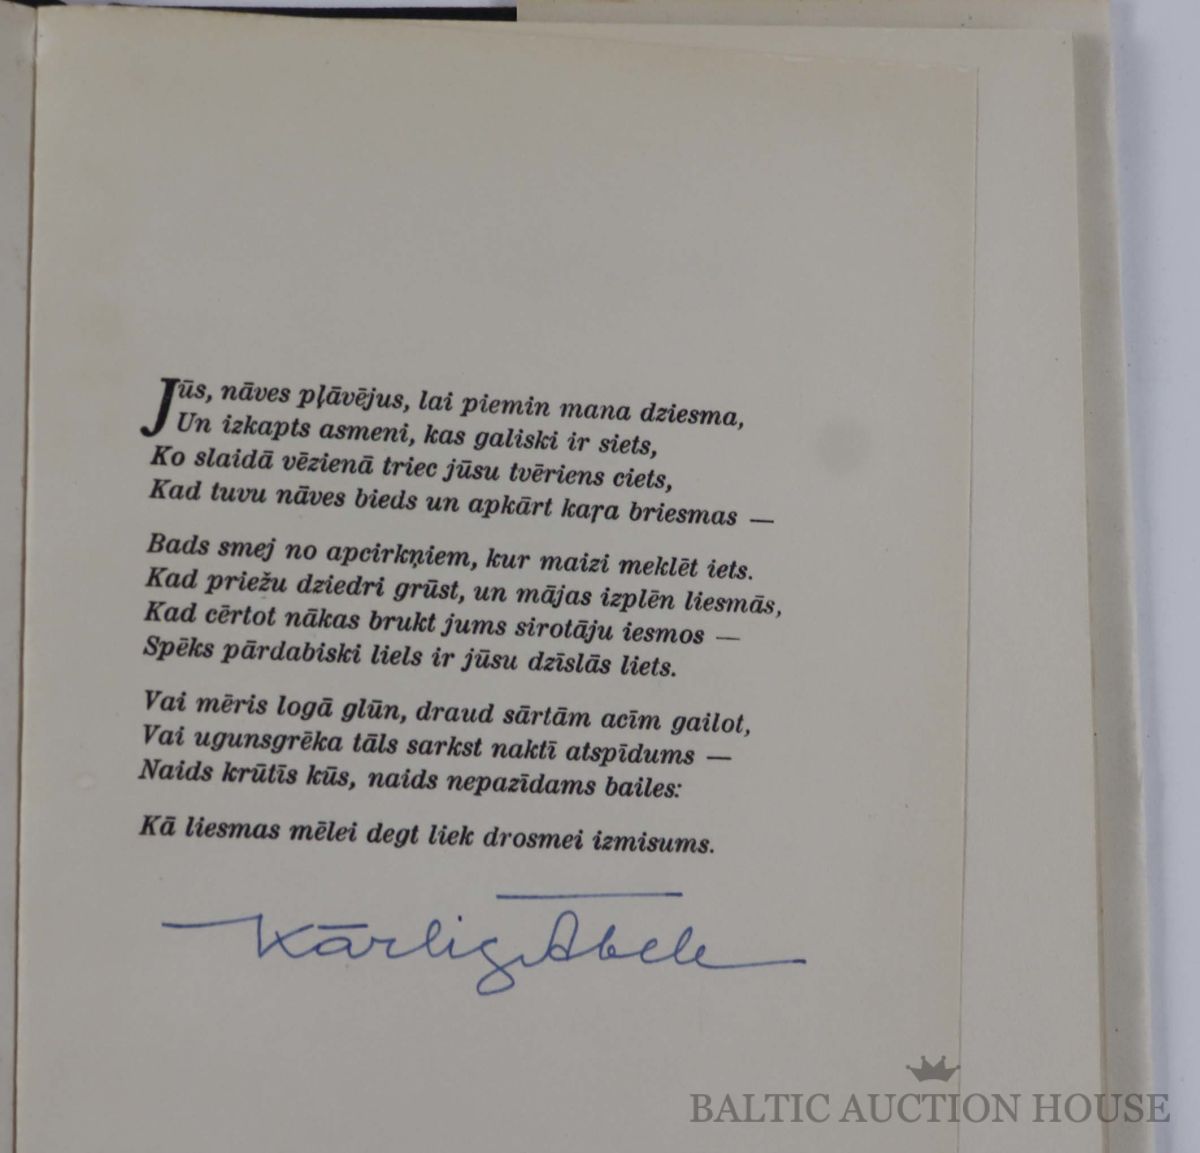 Jūs, nāves pļāvējus, lai piemin mana dziesma,
Un izkapts asmeni, kas galiski ir siets,
Ko slaidā vēzienā triec jūsu tvēriens ciets,
Kad tuvu nāves bieds un apkārt kaŗa briesmas —
Bads smej no apcirkņiem, kur maizi meklēt iets.
Kad priežu dziedri grūst, un mājas izplēn liesmās,
Kad cērtot nākas brukt jums sirotāju iesmos —
Spēks pārdabiski liels ir jūsu dzīslās liets.
Vai mēris logā glūn, draud sārtām acīm gailot,
Vai ugunsgrēka tāls sarkst naktī atspīdums —
Naids krūtīs kūs, naids nepazīdams bailes:
Kā liesmas mēlei degt liek drosmei izmisums.
Kārlis Ābele
BALTIC AUCTION HOUSE